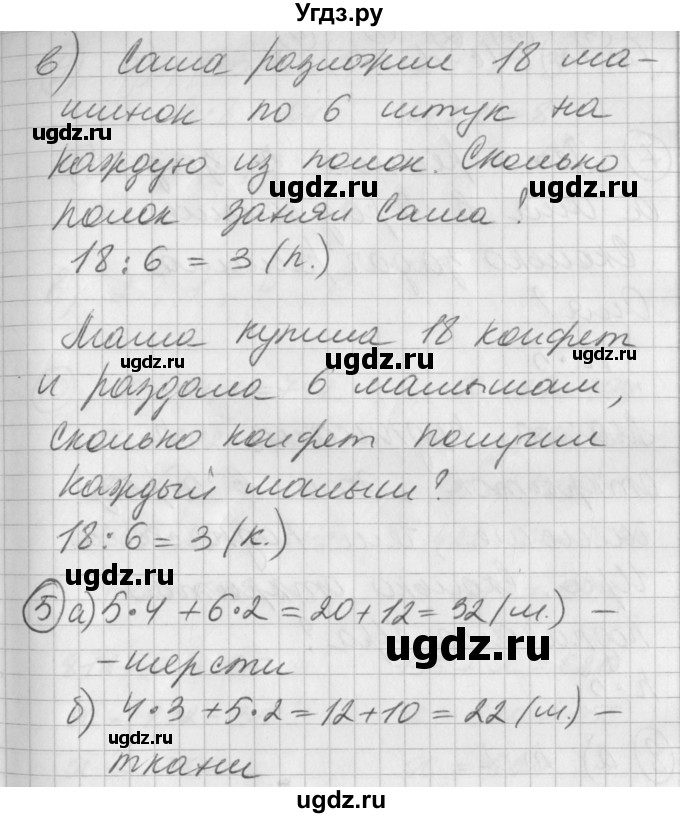 Угдз.ру
в) Саша разложил 18 ма-
шинок по 6 штук на
каждую из полок. Сколько
полок занял Саша?
18:6=3(п.)
Маша купила 18 конфет
и раздала 6 малышам,
Сколько конфет получил
каждый малыш?
18:6=3(к.)
5 а) 5·4+6·2=20+12=32(м.) –
- шерсти
б) 4·3+5·2=12+10=22(м.) –
ткани
ugdz.ru
ugdz.ru
ugdz.ru
ugdz.ru
ugdz.ru
ugdz.ru
ugdz.ru
ugdz.ru
ugdz.ru
ugdz.ru
ugdz.ru
ugdz.ru